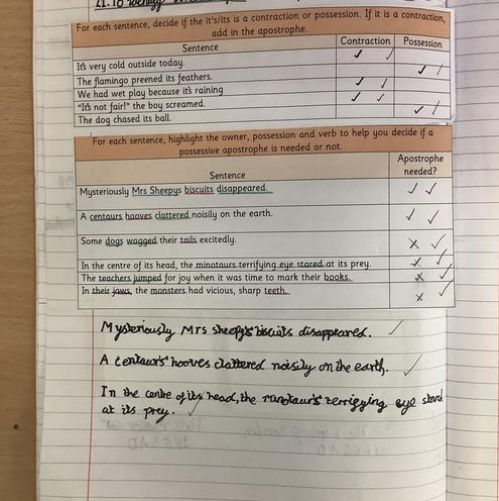 For each sentence, decide if the it's/its is a contraction or possession. If it is a contraction,
add in the apostrophe.
Sentence Contraction Possession
It's very cold outside today. ✓ ✓
The flamingo preened its feathers. ✓ ✓
We had wet play because it's raining ✓ ✓
"It's not fair!" the boy screamed. ✓ ✓
The dog chased its ball. ✓ ✓
For each sentence, highlight the owner, possession and verb to help you decide if a
possessive apostrophe is needed or not.
Sentence Apostrophe
needed?
Mysteriously Mrs Sheepys biscuits disappeared. ✓ ✓
A centaurs hooves clattered noisily on the earth. ✓ ✓
Some dogs wagged their tails excitedly. × ✓
In the centre of its head, the minotaurs terrifying eye stared at its prey. ✓
The teachers jumped for joy when it was time to mark their books. × ✓
In their jaws, the monsters had vicious, sharp teeth. × ✓
Mysteriously Mrs Sheepy's biscuits disappeared. ✓
A centaur's hooves clattered noisily on the earth. ✓
In the centre of its head, the minotaur's terrifying eye stared
at its prey. ✓